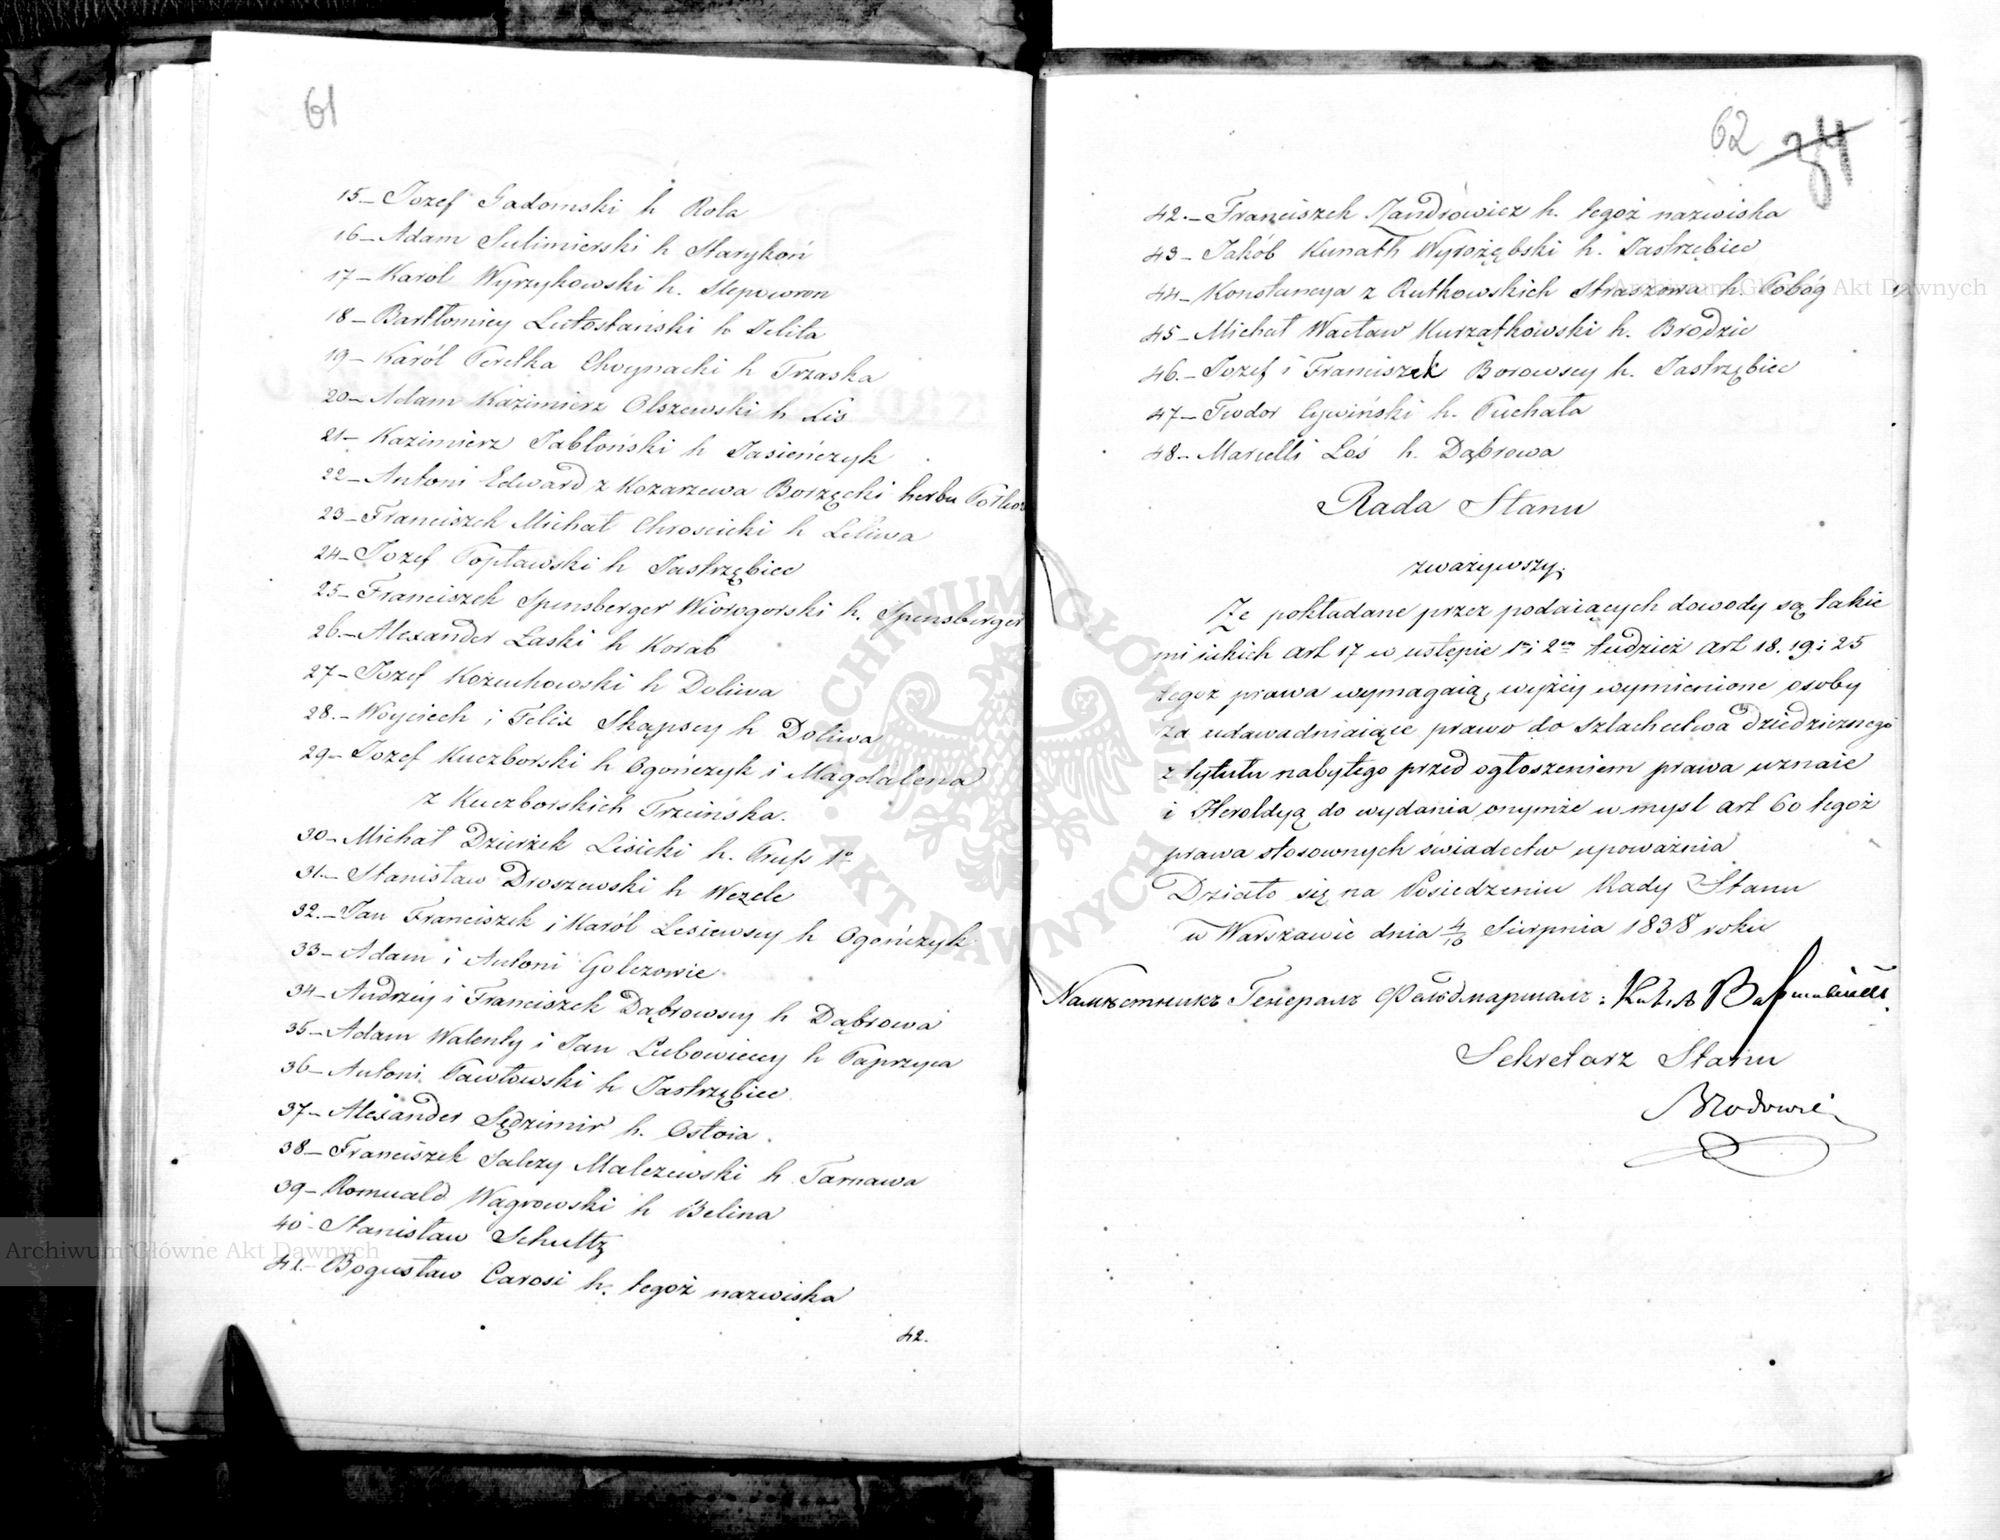 61
15 – Jozef Gadomski h Rola
16 – Adam Sulimierski h Starykoń
17 – Karol Wyrzykowski h. Slepowron
18 – Bartłomiey Lutostański h Jelita
19 – Karól Peretka Choynacki h Trzaska
20 – Adam Kazimierz Olszewski h Lis
21 – Kazimierz Jabłoński h Jasieńczyk
22 – Antoni Edward z Kozarzewa Borzęcki herbu
23 – Franciszek Michał Chroscicki h Leliwa
24 – Jozef Popławski h Jastrzębiec
25 – Franciszek Spensberger Wiorogorski h. Spensberger
26. – Alexander Łaski h Korab
27 – Jozef Kożuchowski h Doliwa
28. – Woyciech i Felix Skapscy h Doliwa
29 – Jozef Kuczborski h Ogończyk i Magdalena
z Kuczborskich Trzcińska.
30 – Michał Dzierżek Lisicki h. Pruss 1º
31. – Stanisław Droszewski h Wezele
32. – Jan Franciszek i Karól Lesiewscy h Ogończyk
33 – Adam i Antoni Golczowie
34 – Andrzéy i Franciszek Dąbrowscy h Dąbrowa
35 – Adam Walenty i Jan Lubowieccy h Paprzyca
36 – Antoni Pawłowski h Jastrzębiec
37 – Alexander Sędzimir h. Ostoia
38 – Franciszek Salezy Malczewski h. Tarnawa
39 – Romuald Wągrowski h Belina
40 – Stanisław Schultz
41. – Bogusław Carosi h. tegoż nazwiska
42.
62 34
42. – Franciszek Żandrowicz h. tegoż nazwiska
43 – Jakób Kunath Wyrozębski h. Jastrzębiec
44 – Konstancya z Rutkowskich Straszowa h. Pobóg
45 – Michał Wacław Kurzątkowski h. Brodzic
46. – Jozef i Franciszek Borowscy h. Jastrzębiec
47 – Teodor Cywiński h. Puchała
48 – Marcelli Łoś h. Dąbrowa
Rada Stanu
zważywszy;
Że pokładane przez podaiących dowody są takie
mi iakich art 17 w ustępie 1m i 2m tudzież art 18. 19 i 25
tegoż prawa wymagaią, wyżéy wymienione osoby
za udawadniaiące prawo do szlachectwa dziedzicznego
z tytułu nabytego przed ogłoszeniem prawa uznaie
i Heroldyą do wydania onymże w mysl art 60 tegoż
prawa stosownych świadectw upoważnia
Działo się na Posiedzeniu Rady Stanu
w Warszawie dnia 4/16 Sierpnia 1838 roku
Намѣстникъ Генералъ Фельдмаршалъ:
Sekretarz Stanu
Archiwum Główne Akt Dawnych
Archiwum Główne Akt Dawnych
ARCHIWUM GŁÓWNE · AKT DAWNYCH ·